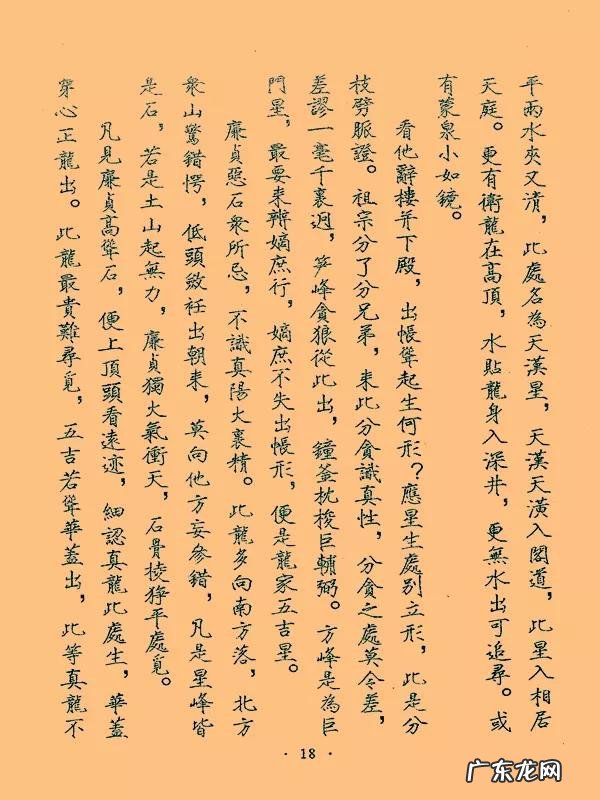 平兩水夾又清，此處名為天漢星，天漢天潢入閣道，此星入相居
天庭。更有衛龍在高頂，水貼龍身入深井，更無水出可追尋。或
有蒙泉小如鏡。
看他辭樓并下殿，出帳聳起生何形？應星生處別立形，此是分
枝劈脈證。祖宗分了分兄弟，來此分貪識真性，分貪之處莫令差，
差謬一毫千裏迥，笋峰貪狼從此出，鐘釜枕梭巨輔弼。方峰是為巨
門星，最要來辨嫡庶行，嫡庶不失出帳形，便是龍家五吉星。
廉貞惡石衆所忌，不識真陽火裏精。此龍多向南方落，北方
衆山驚錯愕，低頭斂衽出朝來，莫向他方妄參錯，凡是星峰皆
是石，若是土山起無力，廉貞獨火氣衝天，石骨棱猙平處覓。
凡見廉貞高聳石，便上頂頭看遠迹，細認真龍此處生，華蓋
穿心正龍出。此龍最貴難尋覓，五吉若聳華蓋出，此等真龍不
· 18 ·
广东龙网